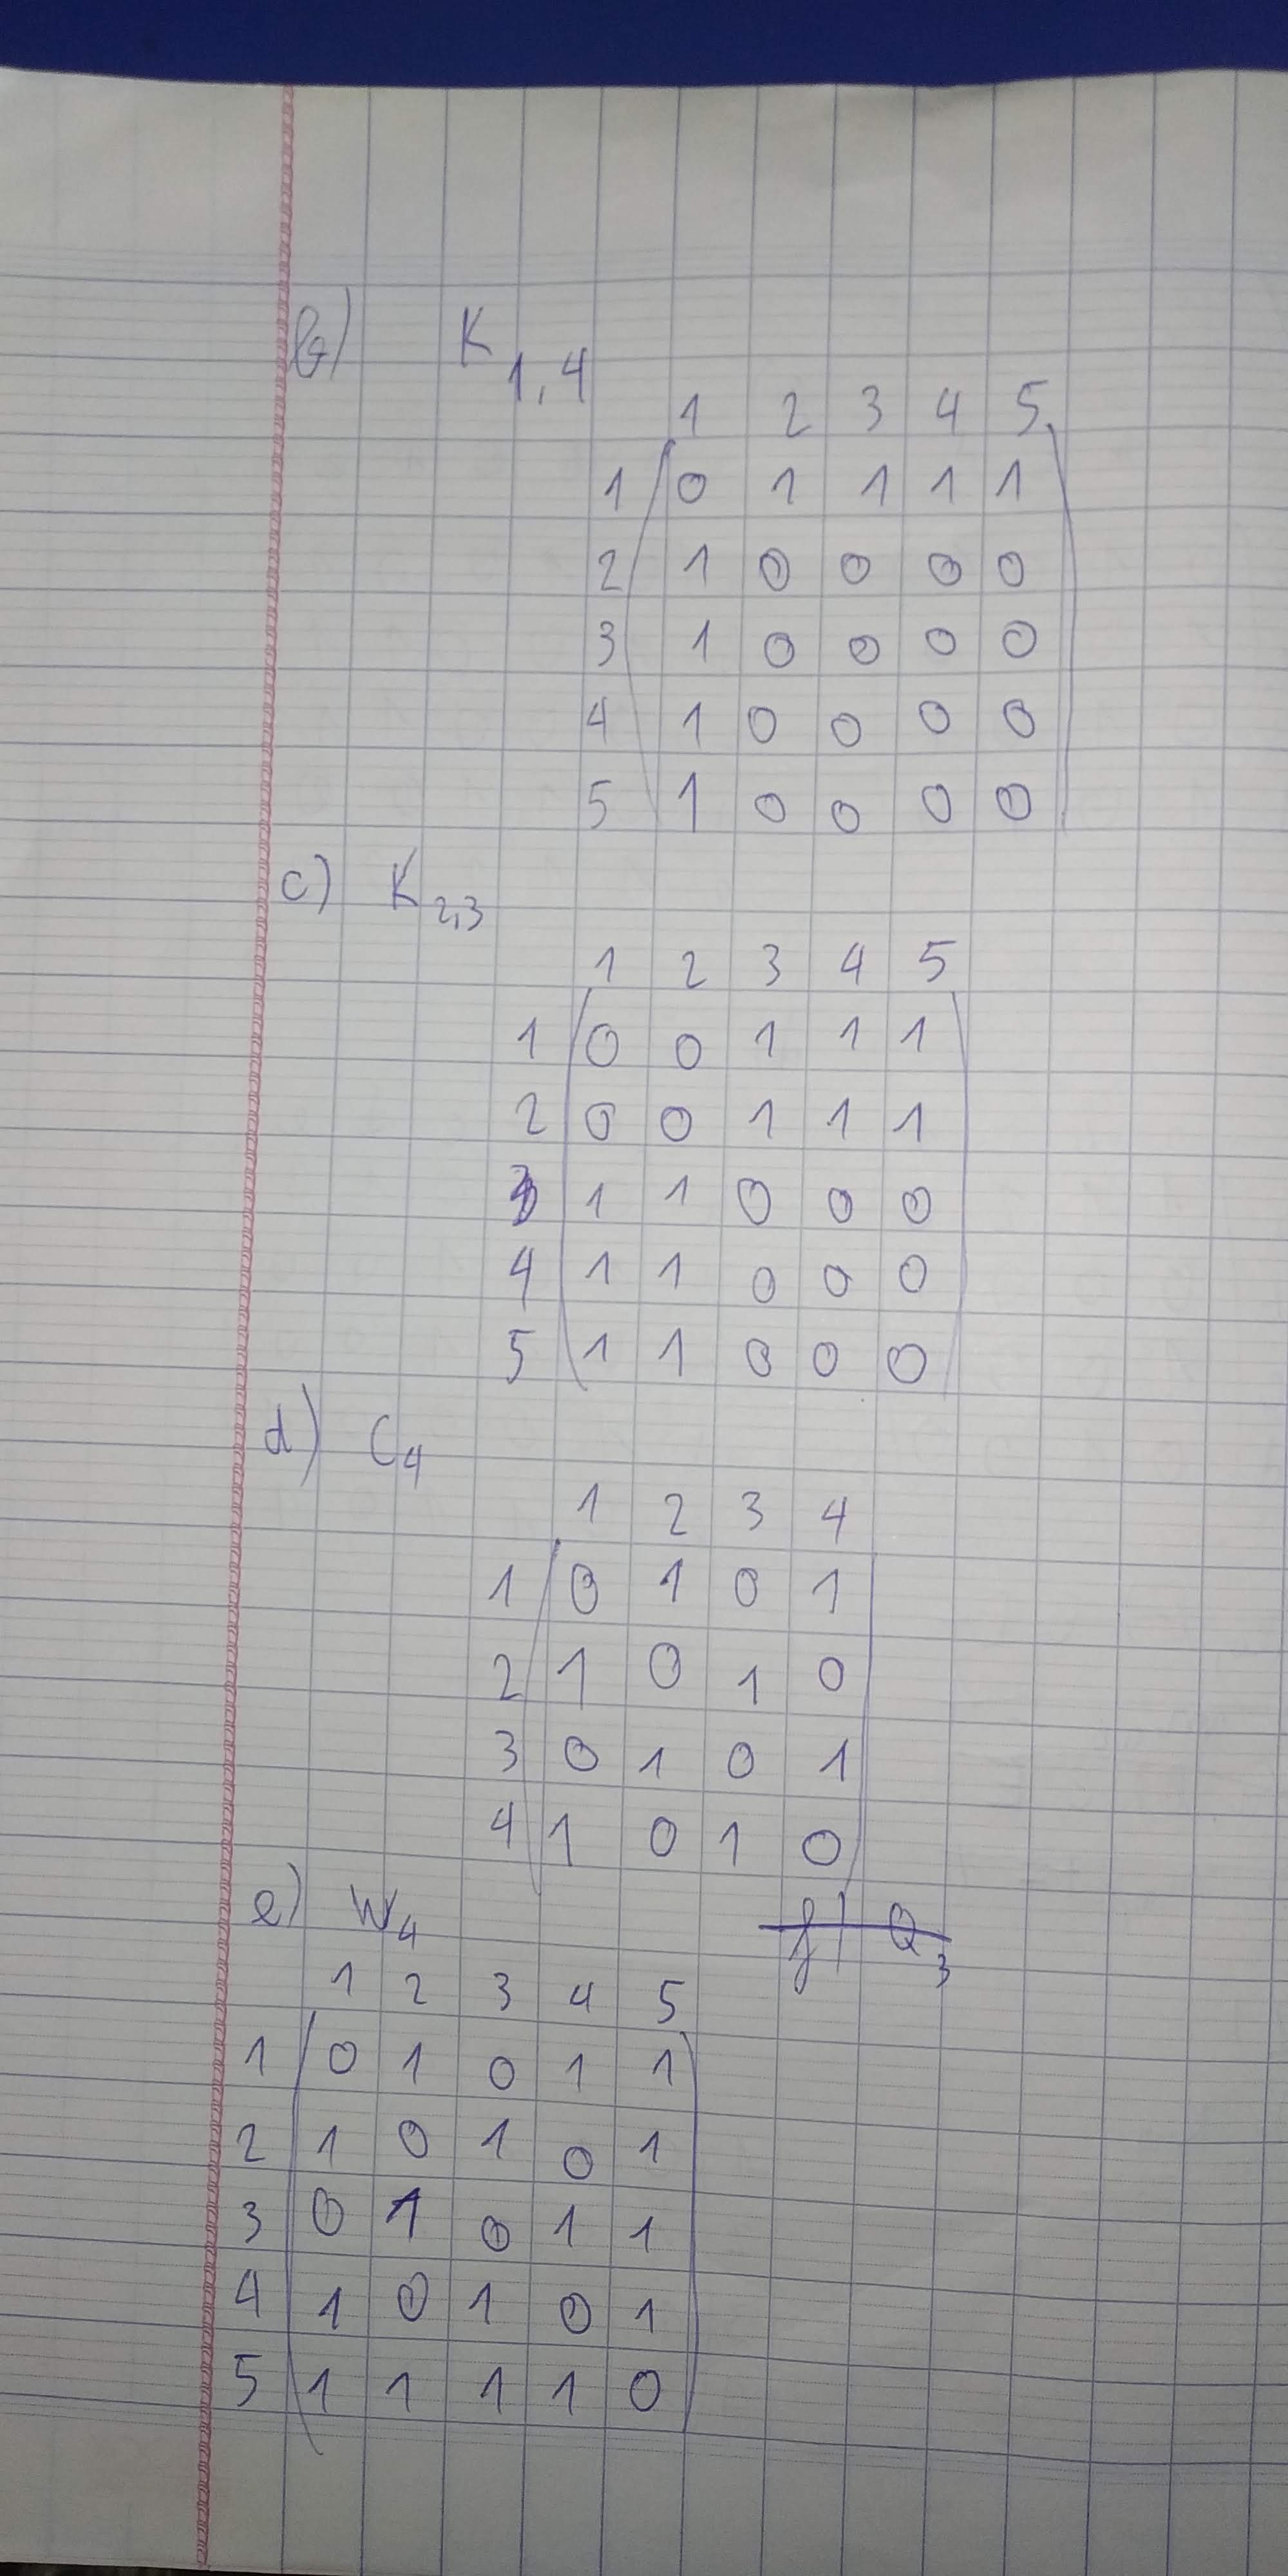 b) K1,4
1 2 3 4 5
1 0 1 1 1 1
2 1 0 0 0 0
3 1 0 0 0 0
4 1 0 0 0 0
5 1 0 0 0 0
c) K2,3
1 2 3 4 5
1 0 0 1 1 1
2 0 0 1 1 1
3 1 1 0 0 0
4 1 1 0 0 0
5 1 1 0 0 0
d) C4
1 2 3 4
1 0 1 0 1
2 1 0 1 0
3 0 1 0 1
4 1 0 1 0
e) W4
f) Q3
1 2 3 4 5
1 0 1 0 1 1
2 1 0 1 0 1
3 0 1 0 1 1
4 1 0 1 0 1
5 1 1 1 1 0